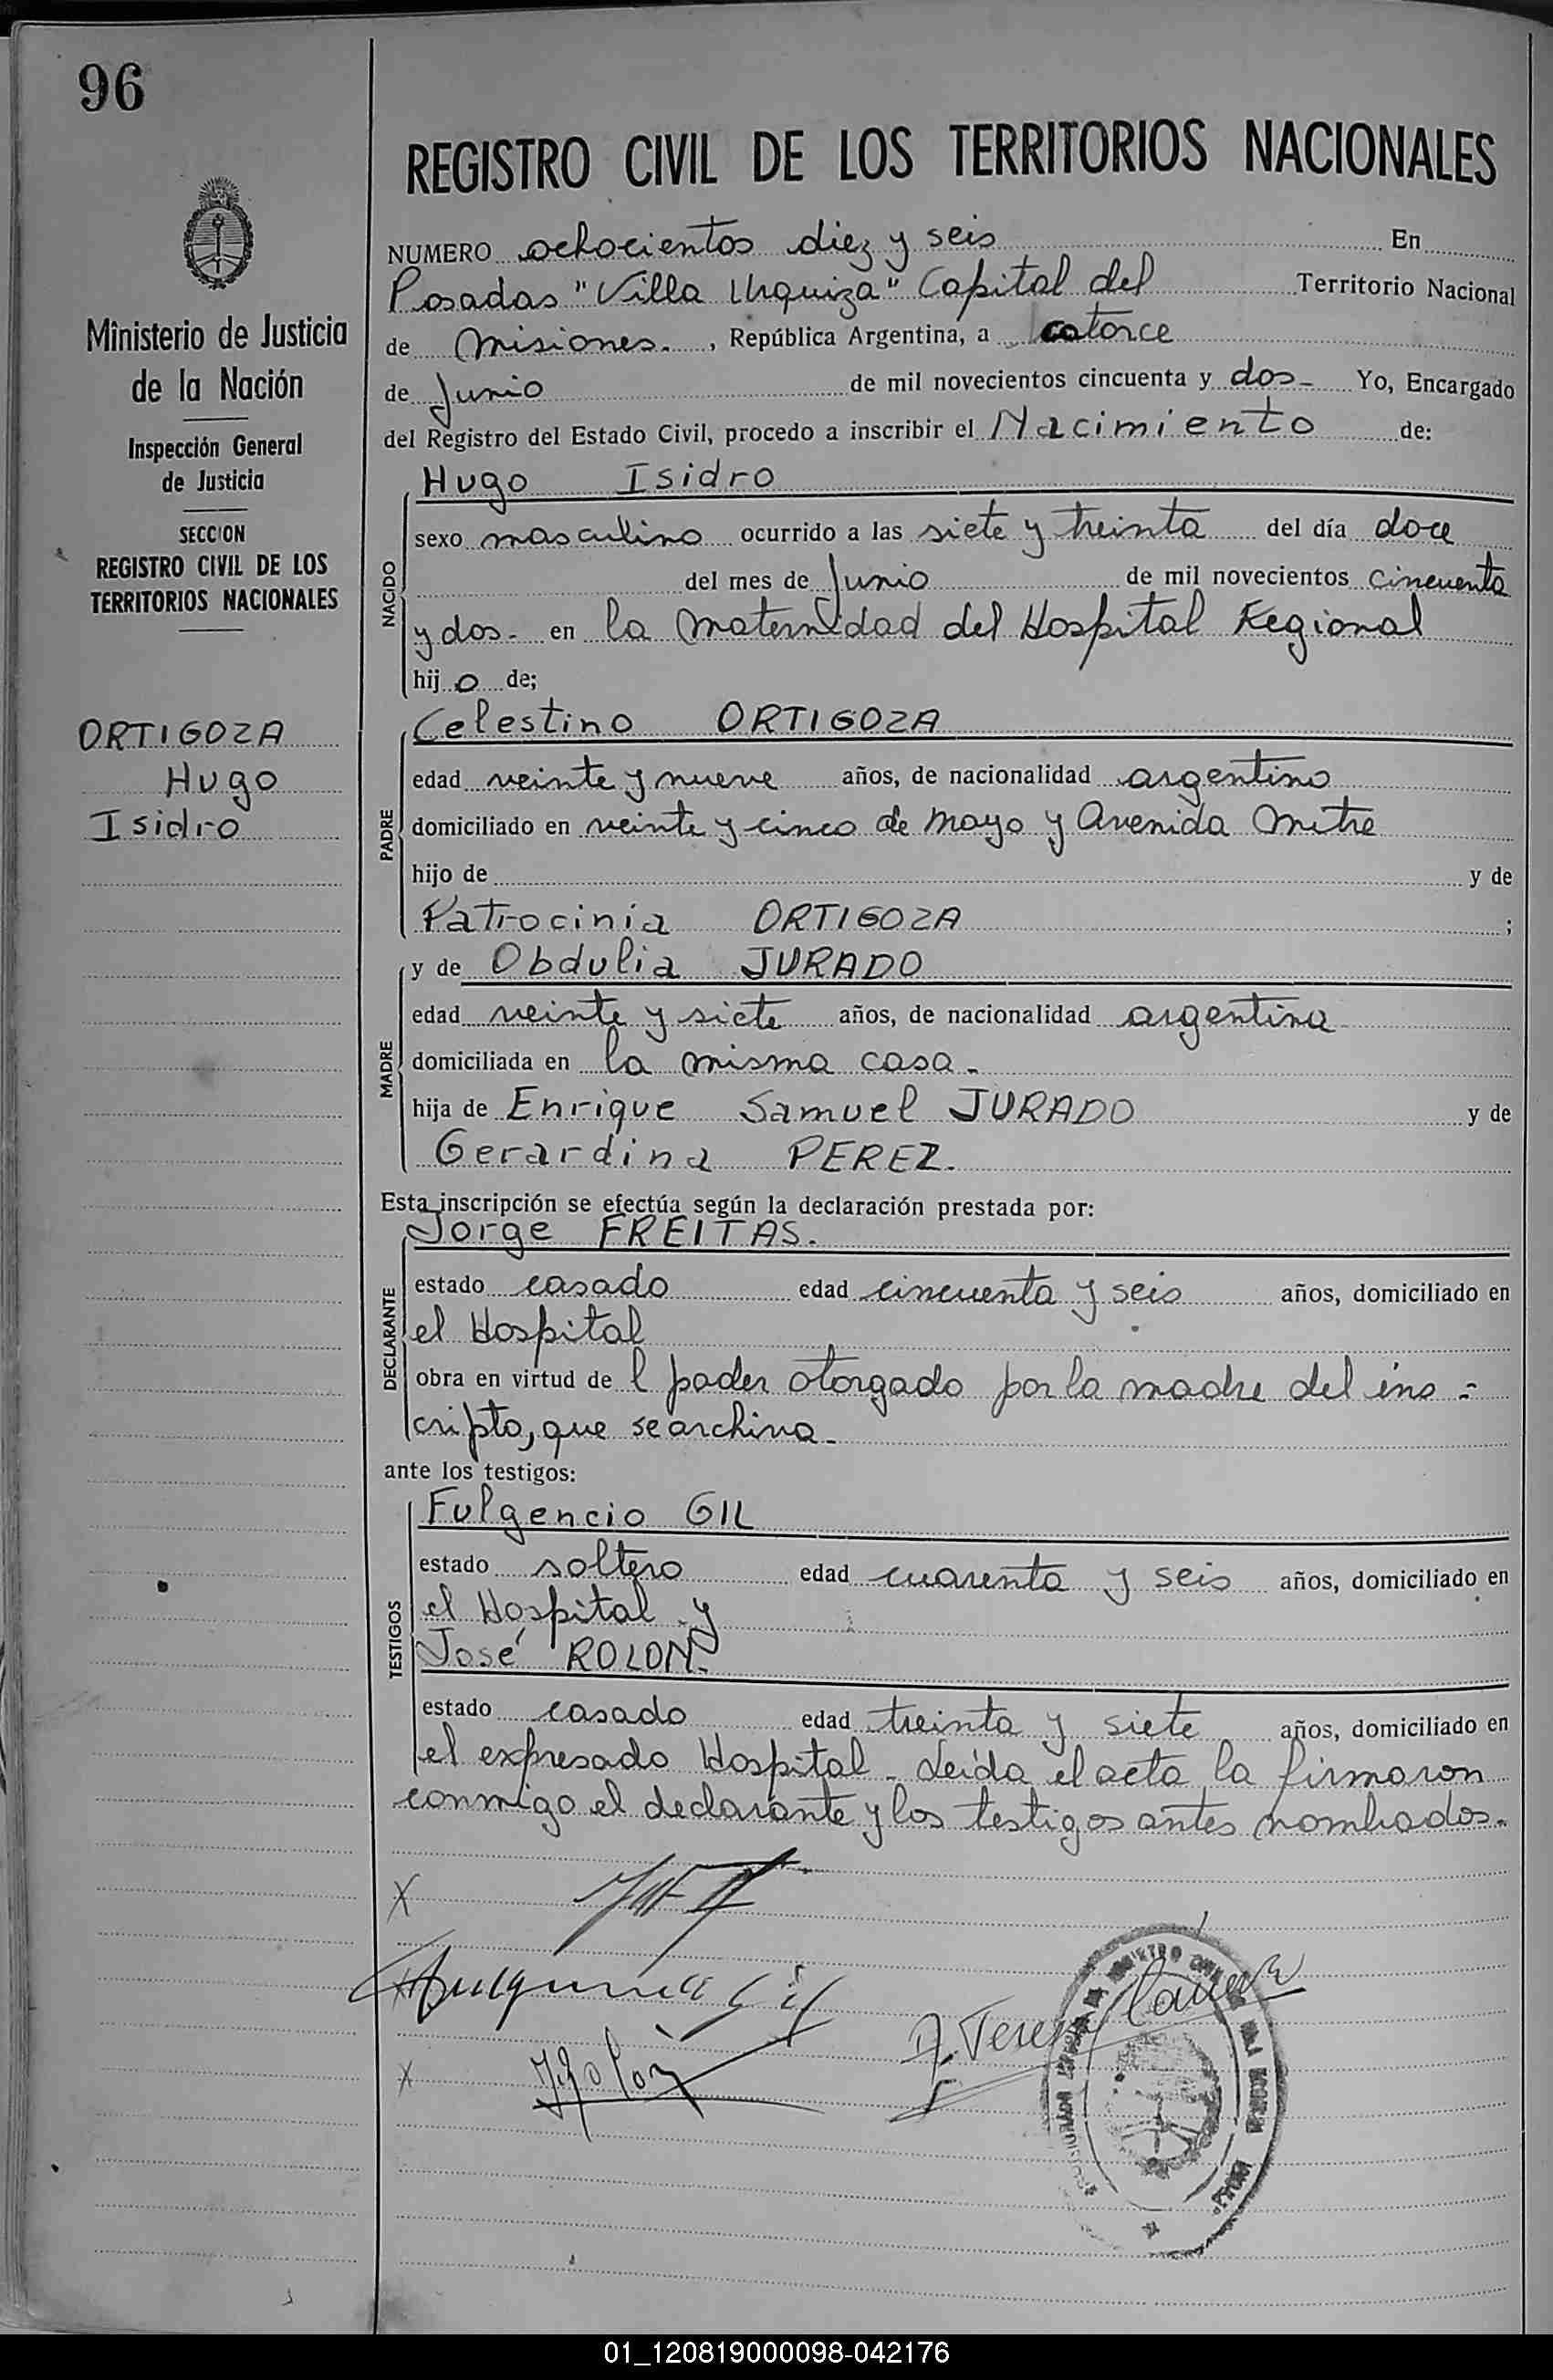 96
REGISTRO CIVIL DE LOS TERRITORIOS NACIONALES
Ministerio de Justicia
de la Nación
Inspección General
de Justicia
SECCION
REGISTRO CIVIL DE LOS
TERRITORIOS NACIONALES
ORTIGOZA
Hugo
Isidro
NUMERO ochocientos diez y seis En
Posadas "Villa Urquiza" Capital del Territorio Nacional
de Misiones. , República Argentina, a catorce
de Junio de mil novecientos cincuenta y dos- Yo, Encargado
del Registro del Estado Civil, procedo a inscribir el Nacimiento de:
NACIDO
Hugo Isidro
sexo masculino ocurrido a las siete y treinta del día doce
del mes de Junio de mil novecientos cincuenta
y dos- en la Maternidad del Hospital Regional
hijo de;
PADRE
Celestino ORTIGOZA
edad veinte y nueve años, de nacionalidad argentino
domiciliado en veinte y cinco de Mayo y Avenida Mitre
hijo de y de
Patrocinia ORTIGOZA ;
MADRE
y de Obdulia JURADO
edad veinte y siete años, de nacionalidad argentina
domiciliada en la misma casa-
hija de Enrique Samuel JURADO y de
Gerardina PEREZ.
Esta inscripción se efectúa según la declaración prestada por:
DECLARANTE
Jorge FREITAS.
estado casado edad cincuenta y seis años, domiciliado en
el Hospital
obra en virtud del poder otorgado por la madre del ins-
cripto, que se archiva-
ante los testigos:
TESTIGOS
Fulgencio GIL
estado soltero edad cuarenta y seis años, domiciliado en
el Hospital y
José ROLON-
estado casado edad treinta y siete años, domiciliado en
el expresado Hospital- Leída el acta la firmaron
conmigo el declarante y los testigos antes nombrados-
X
Gil
X JRolón
01_120819000098-042176